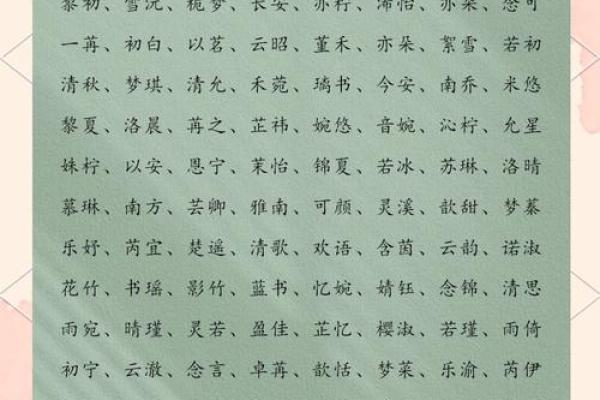 黎初、雪沅、栀梦、长安、亦柠、浠怡、亦朵、念可
一苒、初白、以茗、云昭、董禾、亦朵、絮雪、若初
清秋、梦琪、清允、禾菀、璃书、今安、南乔、米悠
黎夏、洛晨、苒之、芷祎、婉悠、音婉、沁柠、允星
姝柠、以安、恩宁、茉怡、锦夏、若冰、苏琳、洛晴
慕琳、南方、芸卿、雅南、可颜、灵溪、歆甜、梦蓁
乐妤、芮宜、楚遥、清歌、欢语、含茵、云韵、诺淑
花竹、书瑶、影竹、蓝书、忆婉、婧钰、念锦、清思
雨宛、晴瑾、灵若、盈佳、芷忆、樱淑、若瑾、雨倚
初宁、云澈、念言、卓苒、歆恬、梦菜、乐渝、芮伊